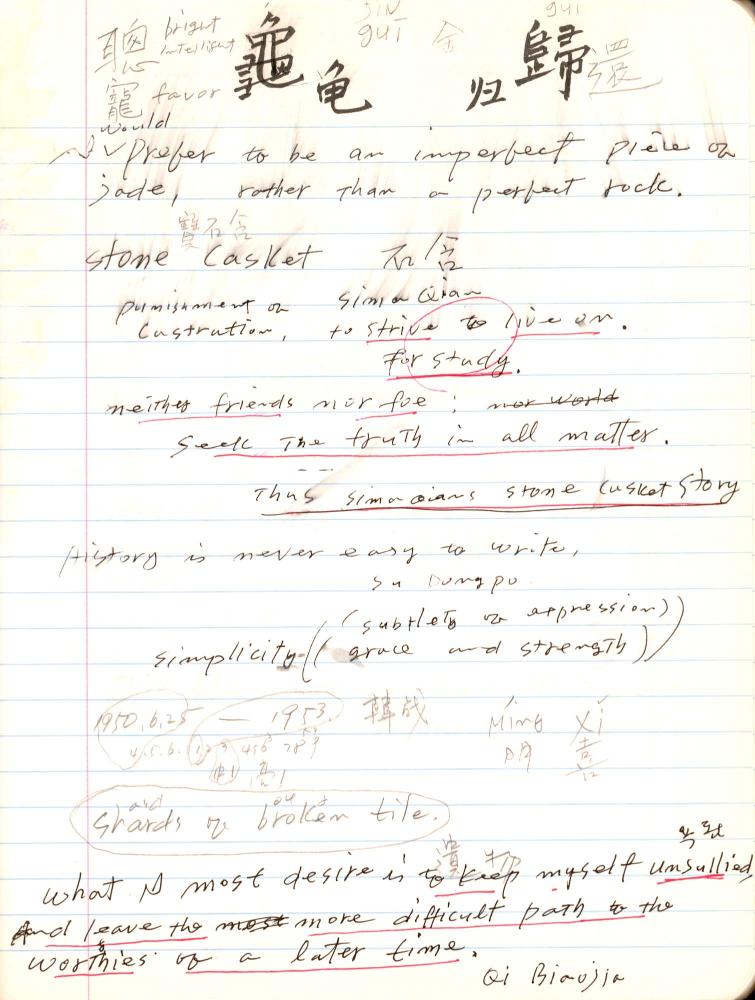 聰 bright
intelligent
寵 favor
龜 龟
gui 金
gui
归 歸 還
would
prefer to be an imperfect piece of
jade, rather than a perfect rock.
寶石含
stone casket 石含
punishment of Simaqian
Castration, to strive to live on.
for study.
neither friends nor foe ; nor world
seek the truth in all matter.
Thus simaqians stone casket story
History is never easy to write,
Su Dongpo
(subtlety of expression)
simplicity (grace and strength)
1950.6.25 — 1953. 韓战
4.5.6. 123 456 789
Ming Xi
明 喜
and
shards of broken tile.
What I most desire is to keep myself unsullied,
And leave the most more difficult path to the
worthies of a later time.
Qi Biaojia